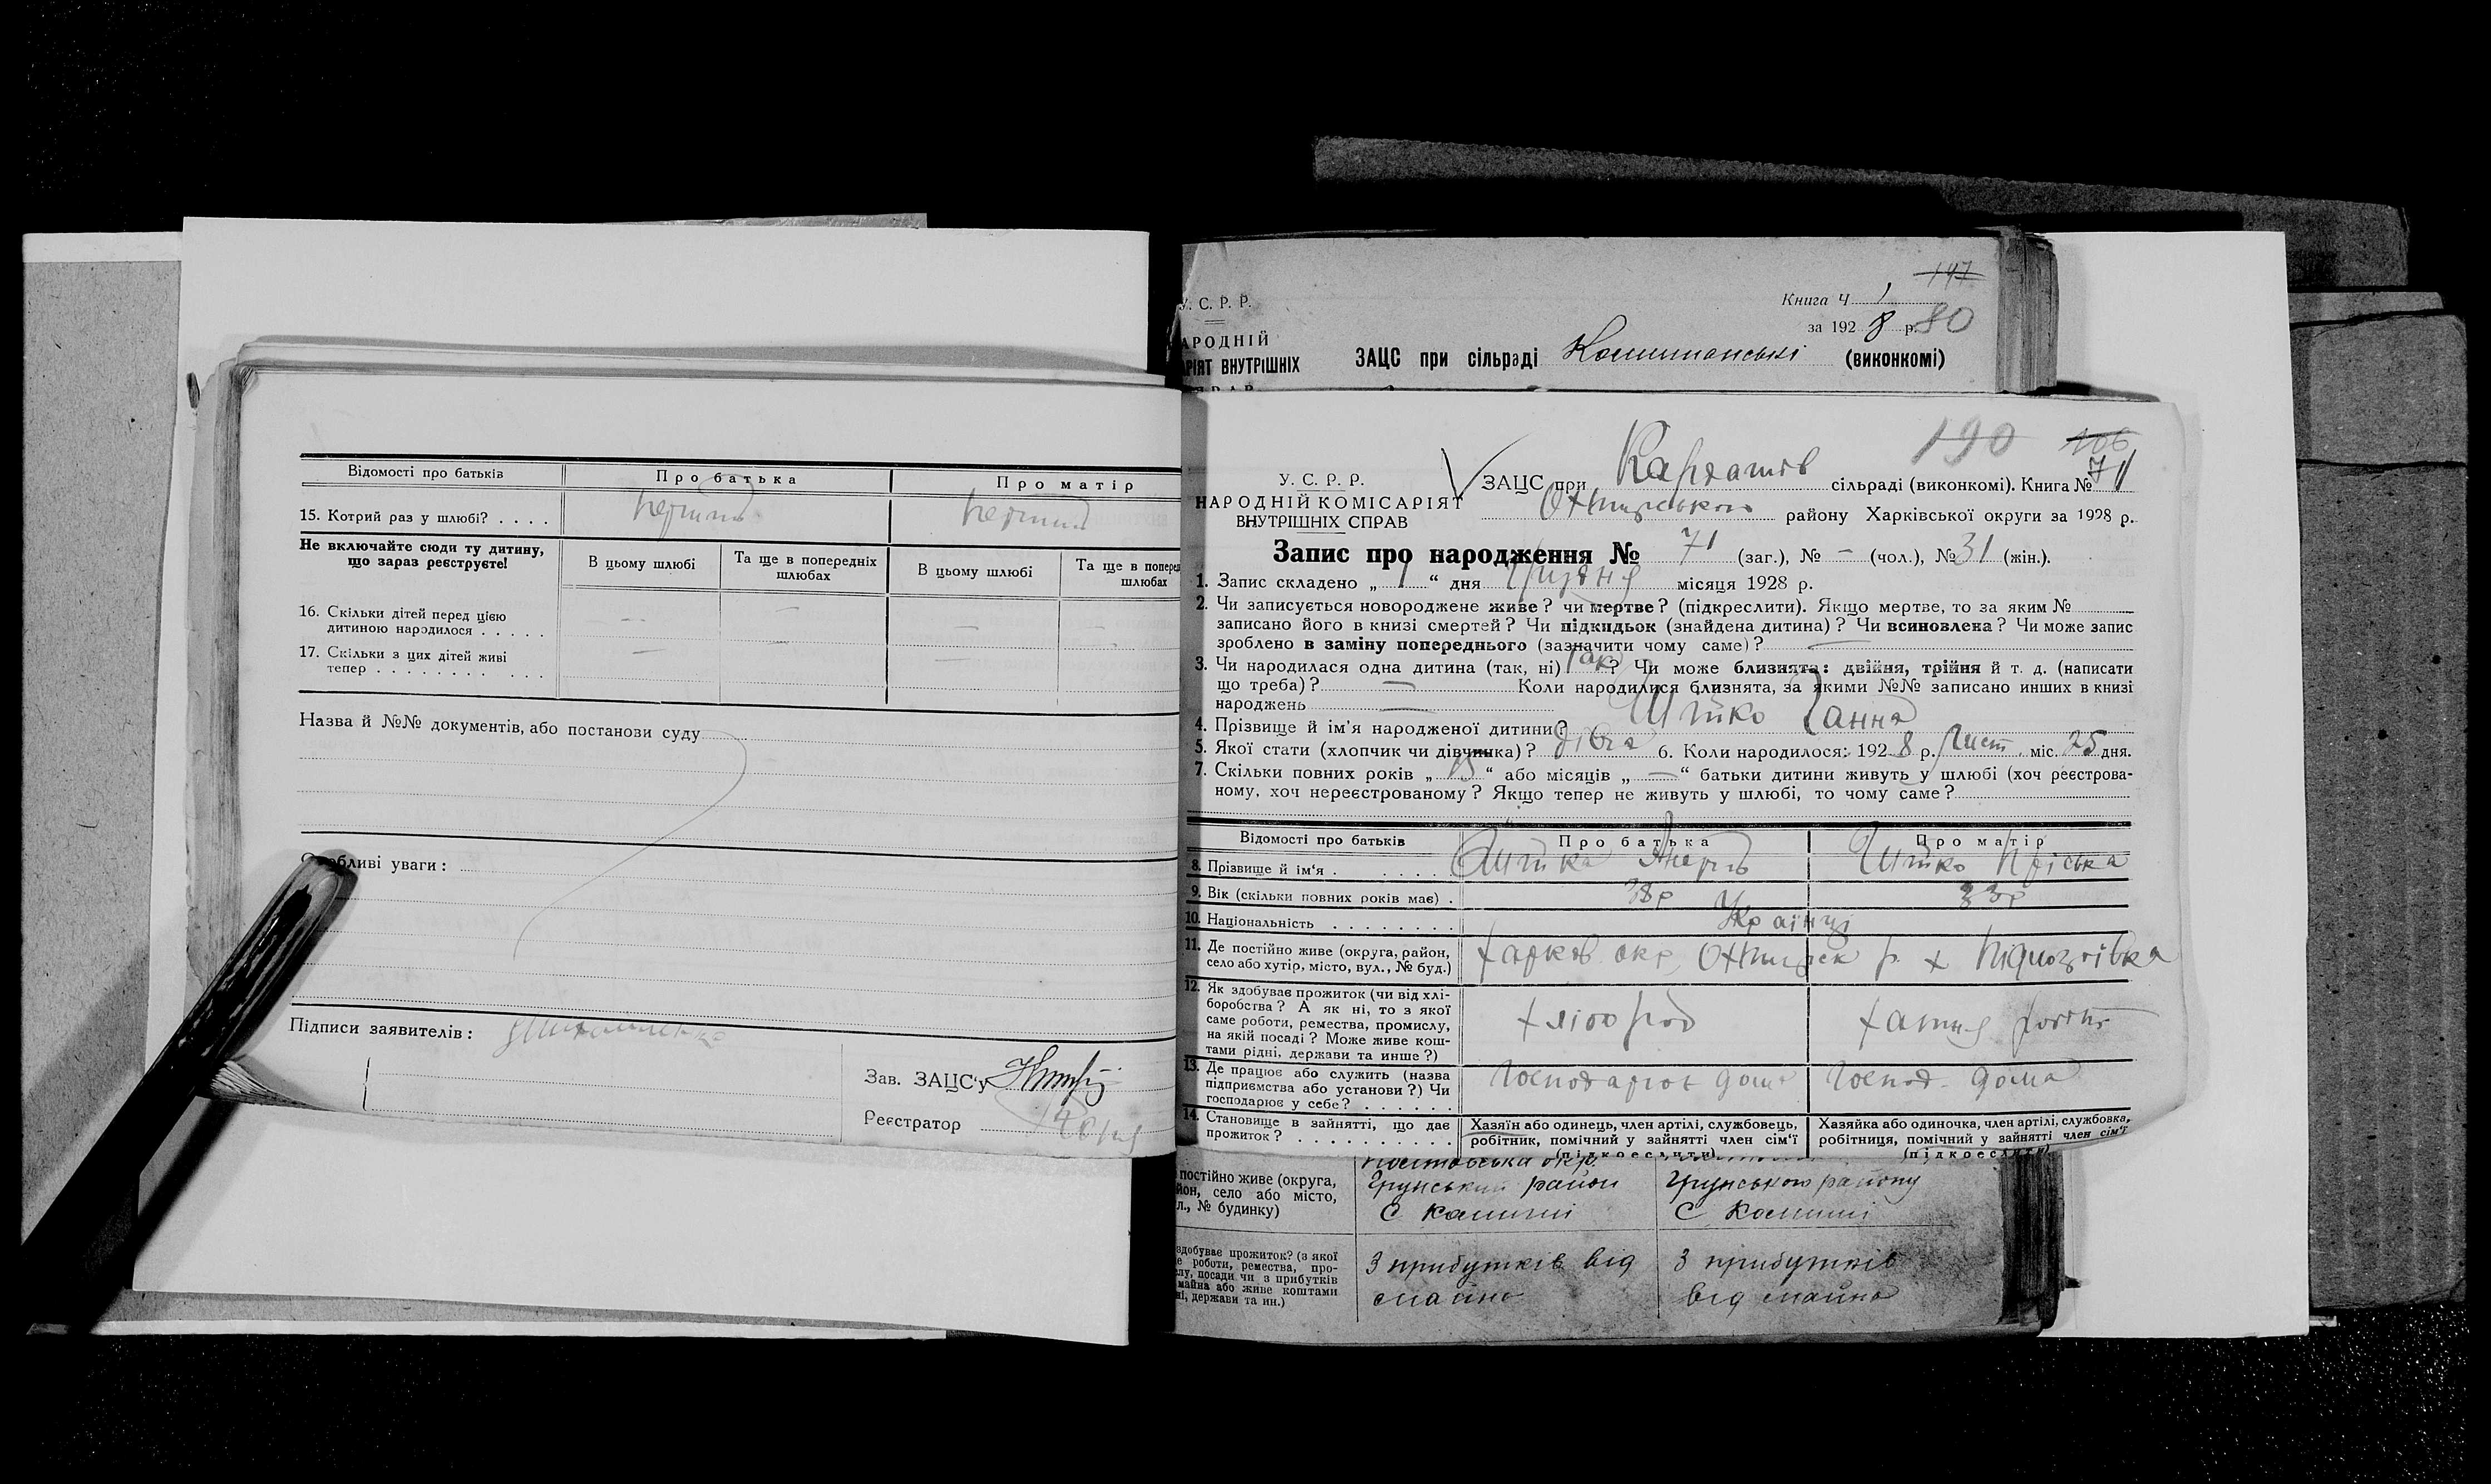 Відомості про батьків Про батька Про матір
15. Котрий раз у шлюбі? . . . . перший перший
Не включайте сюди ту дитину, що зараз реєструєте!
В цьому шлюбі Та ще в попередніх шлюбах В цьому шлюбі Та ще в попере шлюбах
16. Скільки дітей перед цією
дитиною народилося . . . . . — — — —
17. Скільки з цих дітей живі
тепер . . . . . . . . . . . — —
Назва й №№ документів, або постанови суду
Особливі уваги :
Підписи заявителів :
Зав. ЗАЦС'у
Реєстратор
147
У. С. Р. Р. Книга Ч 1
за 1928 р. 80
АРОДНІЙ
РІЯТ ВНУТРІШНІХ ЗАЦС при сільраді (виконкомі)
190 106
У. С. Р. Р. ЗАЦС при сільраді (виконкомі). Книга № 71
НАРОДНІЙ КОМІСАРІЯТ
ВНУТРІШНІХ СПРАВ Охтирського району Харківської округи за 1928 р.
Запис про народження № 71 (заг.), № — (чол.), № 31 (жін.).
1. Запис складено „ 1 “ дня Грудня місяця 1928 р.
2. Чи записується новороджене живе? чи мертве? (підкреслити). Якщо мертве, то за яким №
записано його в книзі смертей? Чи підкидьок (знайдена дитина)? Чи всиновлена? Чи може запис
зроблено в заміну попереднього (зазначити чому саме)? —
3. Чи народилася одна дитина (так, ні) Так? Чи може близнята: двійня, трійня й т. д. (написати
що треба)? — Коли народилися близнята, за якими №№ записано инших в книзі
народжень —
4. Прізвище й ім'я народженої дитини? Шитко Ганна
5. Якої стати (хлопчик чи дівчинка)? дівча 6. Коли народилося: 1928 р. Лист. міс. 25 дня.
7. Скільки повних років „ 15 “ або місяців „ — “ батьки дитини живуть у шлюбі (хоч реєстрова-
ному, хоч нереєстрованому? Якщо тепер не живуть у шлюбі, то чому саме?
Відомості про батьків Про батька Про матір
8. Прізвище й ім'я . . . . . Шитко Шитко Пріська
9. Вік (скільки повних років має) . 38р 33р
10. Національність . . . . . . . . Українці
11. Де постійно живе (округа, район,
село або хутір, місто, вул., № буд.) Харків окр, Охтирськ р. х
12. Як здобуває прожиток (чи від хлі-
боробства? А як ні, то з якої
саме роботи, ремества, промислу,
на якій посаді? Може живе кош-
тами рідні, держави та инше?) хлібороб хатня робота
13. Де працює або служить (назва
підприємства або установи?) Чи
господарює у себе? . . . . . . Господарює дома Господ. дома
14. Становище в зайнятті, що дає
прожиток? . . . . . . . . . .
Хазяїн або одинець, член артілі, службовець,
робітник, помічний у зайнятті член сім'ї
(підкреслити)
Хазяйка або одиночка, член артілі, службовка,
робітниця, помічний у зайнятті член сім'ї
(підкреслити)
постійно живе (округа,
йон, село або місто,
л., № будинку)
Грунський район Грунського району
с Комиші с Комиші
здобуває прожиток? (з якої
е роботи, ремества, про-
слу, посади чи з прибутків
майна або живе коштами
ні, держави та ин.)
З прибутків від З прибутків
майна від майна